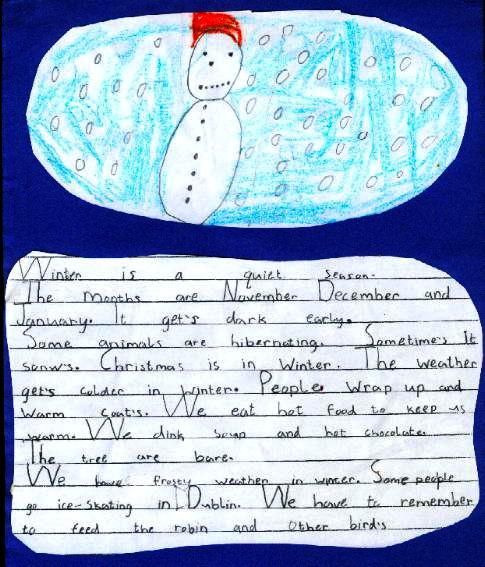 Winter is a quiet season.
The months are November December and
January. It get's dark early.
Some animals are hibernating. Sometime's It
sonw's. Christmas is in Winter. The weather
get's colder in winter. People wrap up and
warm coat's. We eat hot food to keep us
warm. We dink soup and hot chocolate.
The tree are bare.
We have frosty weather in winter. Some people
go ice-skating in Dublin. We have to remember
to feed the robin and other bird's